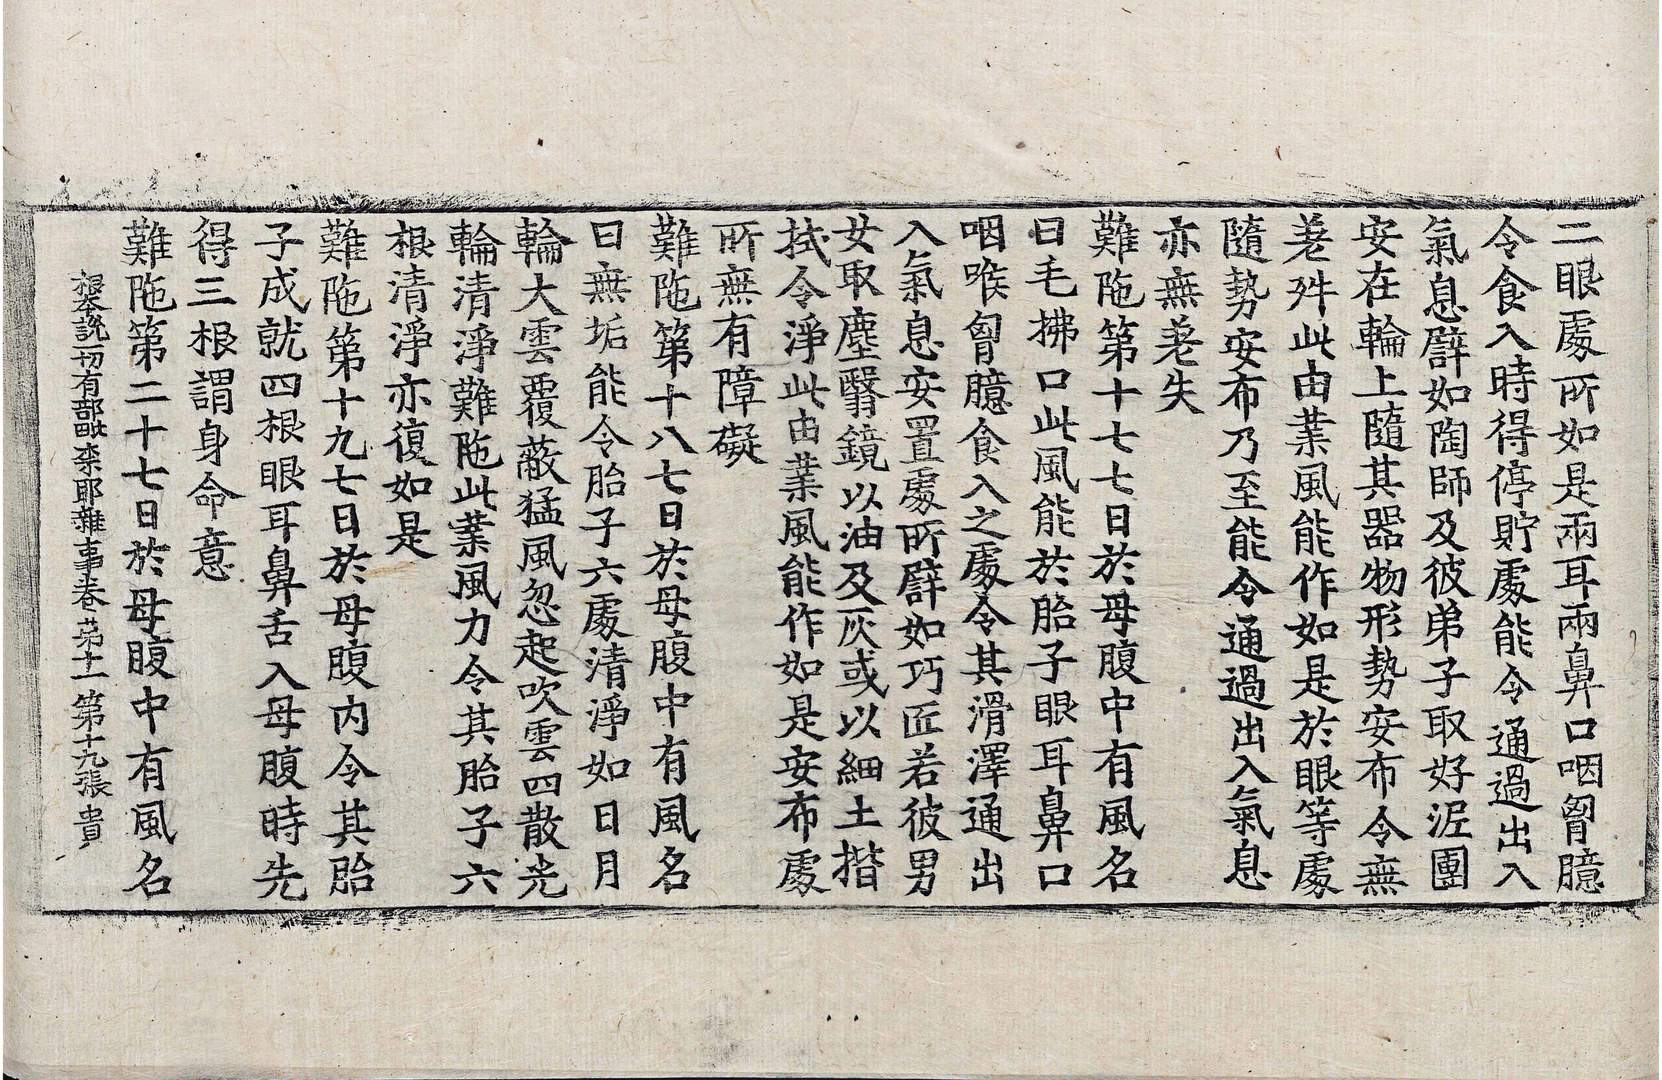 二眼處所如是兩耳兩鼻口咽𦙄臆
令食入時得停貯處能令通過出入
氣息譬如陶師及彼弟子取好泥團
安在輪上隨其器物形勢安布令無
差殊此由業風能作如是於眼等處
隨勢安布乃至能令通過出入氣息
亦無差失
難陁第十七七日於母腹中有風名
曰毛拂口此風能於胎子眼耳鼻口
咽喉𦙄臆食入之處令其滑澤通出
入氣息安置處所譬如巧匠若彼男
女取塵翳鏡以油及灰或以細土揩
拭令淨此由業風能作如是安布處
所無有障礙
難陁第十八七日於母腹中有風名
曰無垢能令胎子六處清淨如日月
輪大雲覆蔽猛風忽起吹雲四散光
輪清淨難陁此業風力令其胎子六
根清淨亦復如是
難陁第十九七日於母腹內令其胎
子成就四根眼耳鼻舌入母腹時先
得三根謂身命意
難陁第二十七日於母腹中有風名
根本說一切有部毗奈耶雜事卷第十一 第十九張 貴